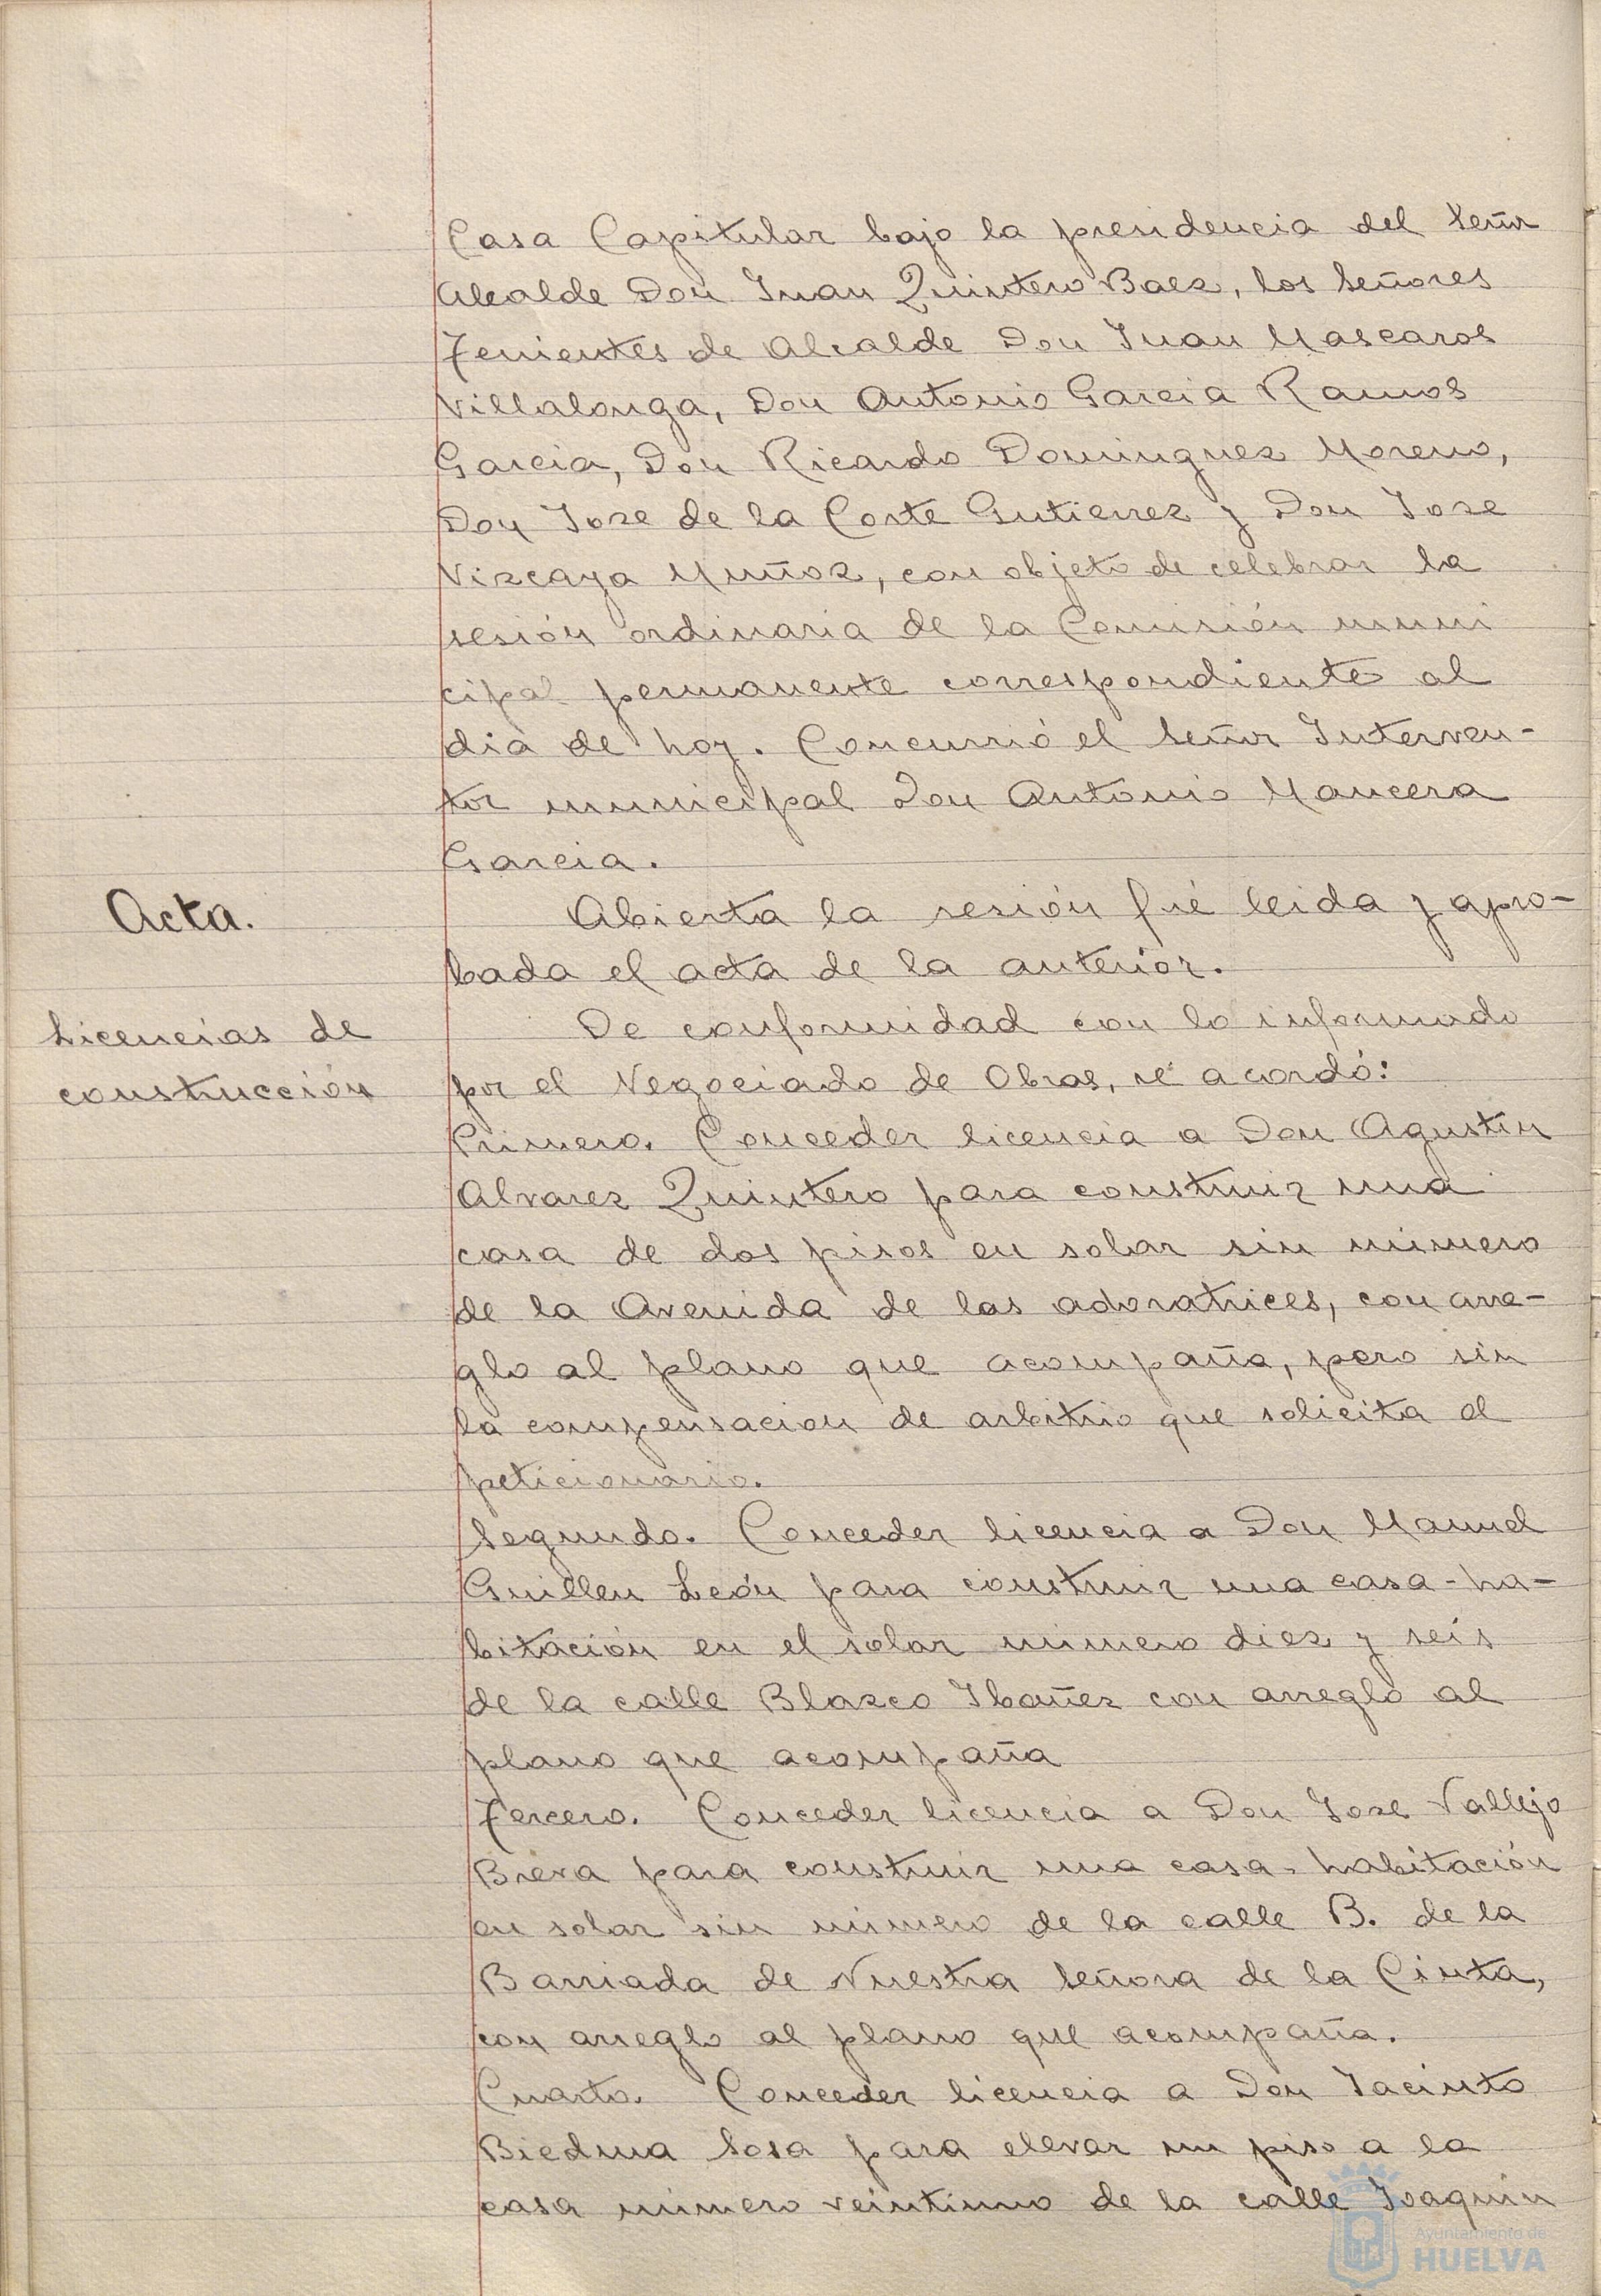 Casa Capitular bajo la presidencia del Señor
Alcalde Don Juan Quintero Baez, los Señores
Tenientes de Alcalde Don Juan Mascaros
Villalonga, Don Antonio Garcia Ramos
Garcia, Don Ricardo Dominguez Moreno,
Don Jose de la Corte Gutierrez y Don Jose
Vizcaya Muñoz, con objeto de celebrar la
sesión ordinaria de la Comisión muni
cipal permanente correspondiente al
dia de hoy. Concurrió el Señor Interven-
tor municipal Don Antonio Mancera
Garcia.
Acta.
Abierta la sesión fué leida y apro-
bada el acta de la anterior.
Licencias de
construcción
De conformidad con lo informado
por el Negociado de Obras, se acordó:
Primero. Conceder licencia a Don Agustin
Alvarez Quintero para construir una
casa de dos pisos en solar sin número
de la Avenida de las adoratrices, con arre-
glo al plano que acompaña, pero sin
la compensacion de arbitrio que solicita el
peticionario.
Segundo. Conceder licencia a Don Manuel
Guillen León para construir una casa-ha-
bitación en el solar número diez y seis
de la calle Blazco Ibañez con arreglo al
plano que acompaña
Tercero. Conceder licencia a Don Jose Vallejo
Breva para construir una casa-habitación
en solar sin número de la calle B. de la
Barriada de Nuestra Señora de la Cinta,
con arreglo al plano que acompaña.
Cuarto. Conceder licencia a Don Jacinto
Biedma Sosa para elevar un piso a la
casa número veintiuno de la calle Joaquin
Ayuntamiento de
HUELVA